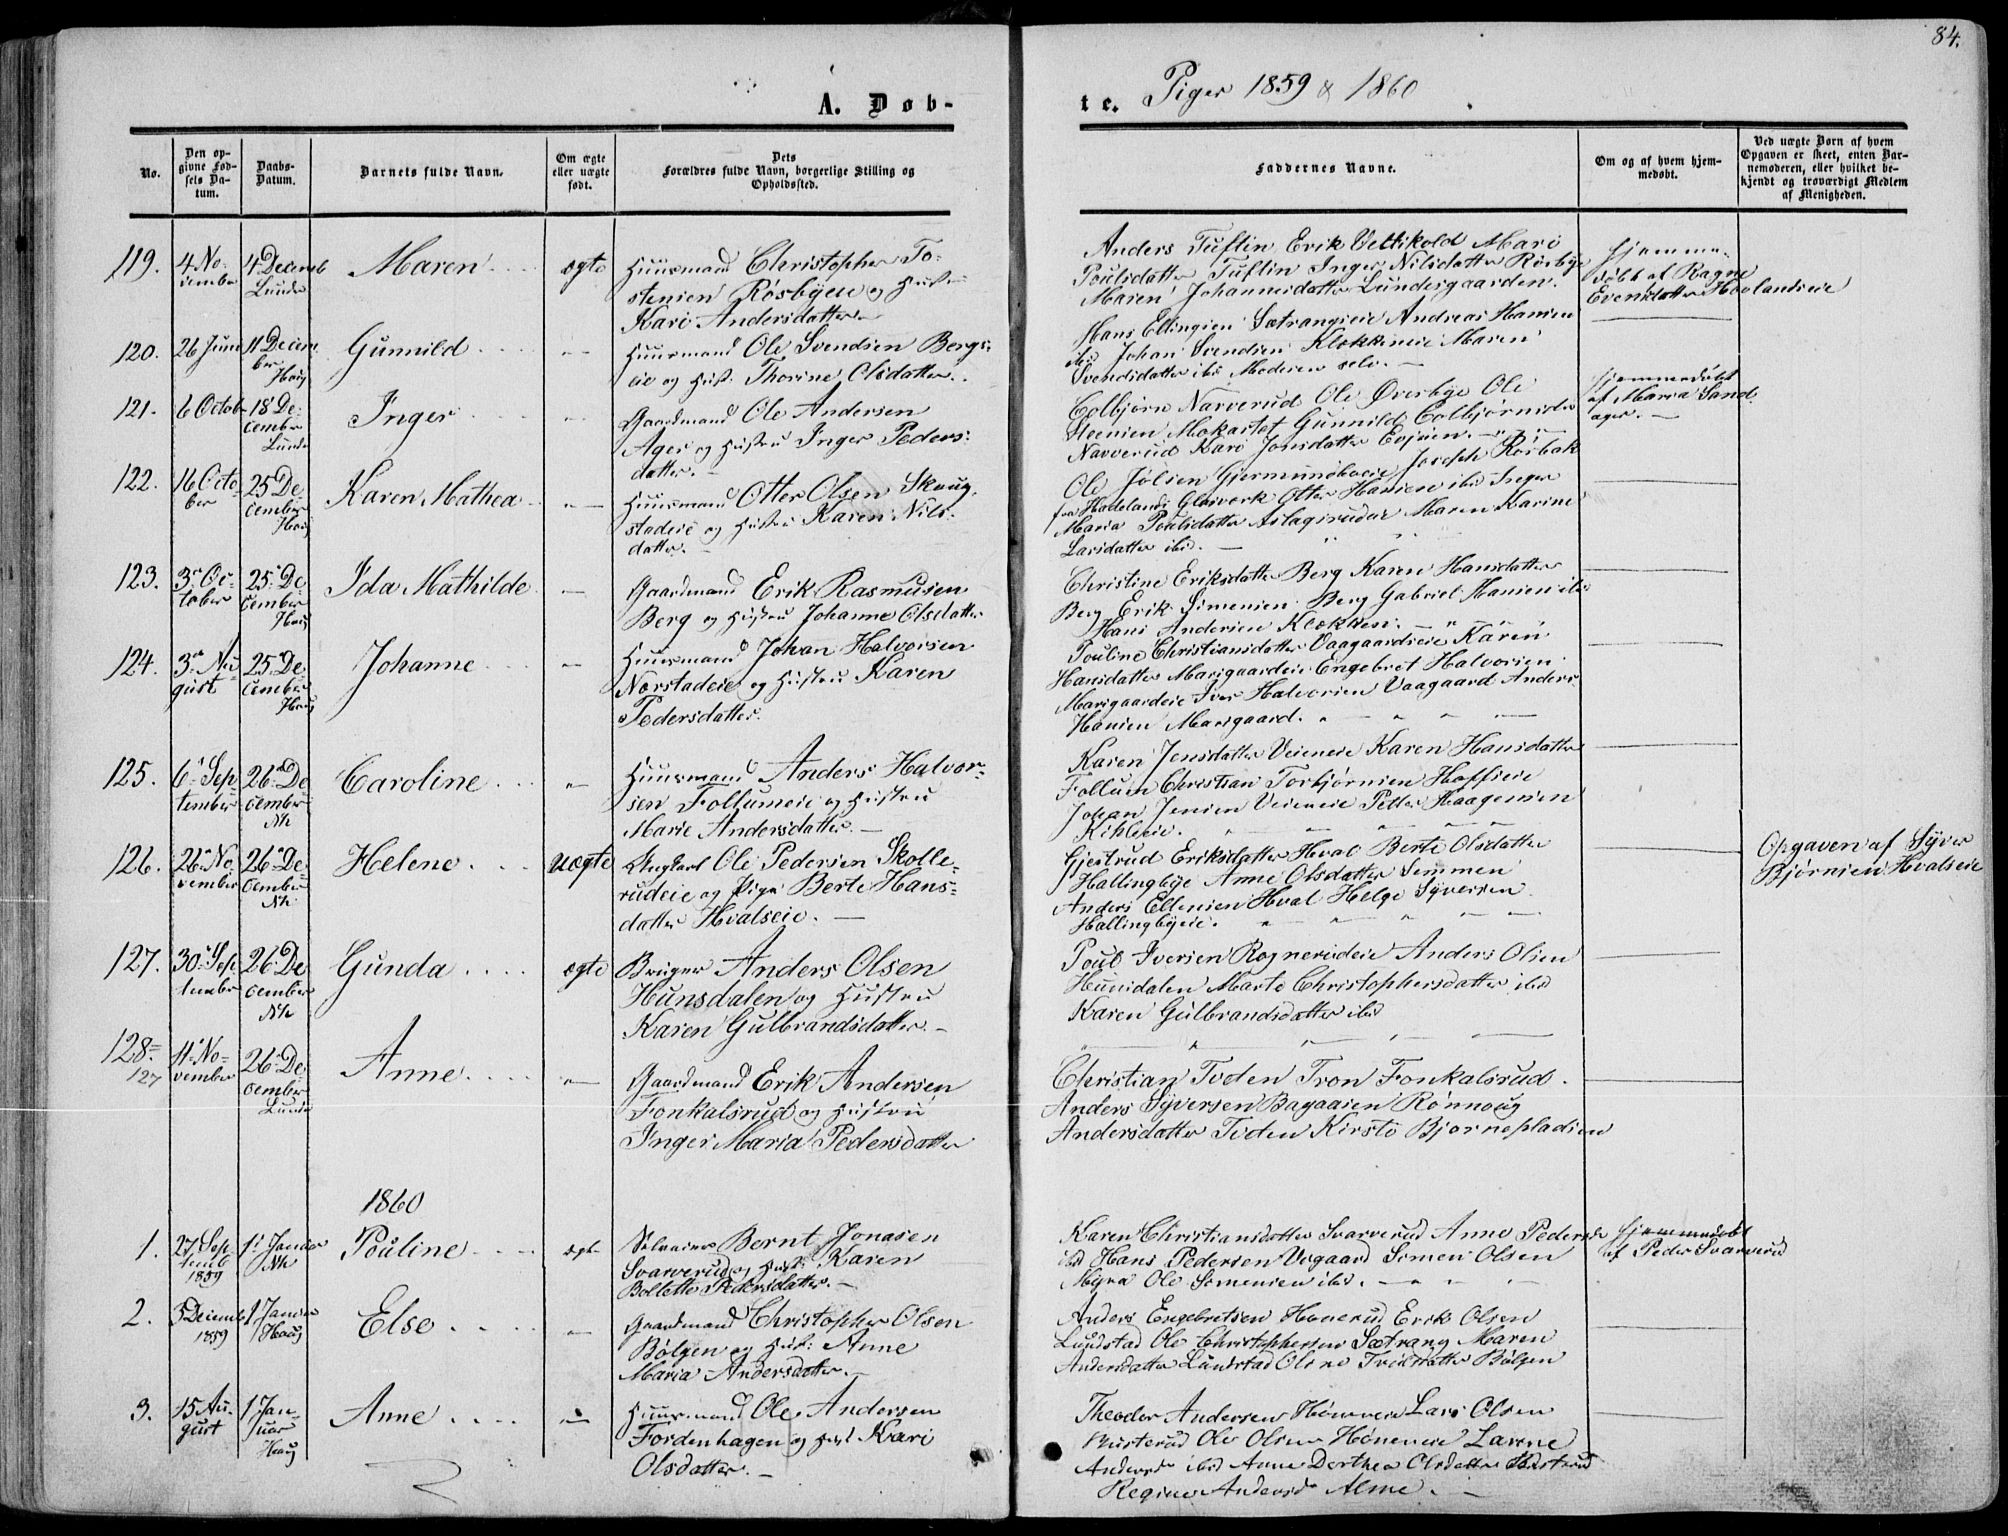 84.
A. Døb-
te. Piger 1859 & 1860
No.
Den op-
givne Fød-
sels Da-
tum.
Daabs-
Datum.
Barnets fulde Navn.
Om ægte
eller uægte
født.
Dets
Forældres fulde Navn, borgerlige Stilling og
Opholdssted.
Faddernes Navne.
Om og af hvem hjem-
medøbt.
Ved uægte Børn af hvem
Opgaven er skeet, enten Bar-
nemoderen, eller hvilket be-
kjendt og troværdigt Medlem
af Menigheden.
119.
4 No-
vember
4 Decemb
Lunder
Maren
ægte
Huusmand Christopher To-
stensen Røsbyeie og Hustru
Kari Andersdatter
Anders Tuftin Erik Vettikold Mari
Poulsdatter Tuftin Inger Nilsdatter Røsbye
Maren Johannesdatter Lundesgaarden.
Hjemme-
døbt af Ragne
Evensdatter Hovlandseie
120.
26 Juni
11 Decem
ber
Haug
Gunnild
Huusmand Ole Svendsen Bergs-
eie og Hust. Thorine Olsdatter.
Hans Ellingsen Sætrangseie Andreas Hansen
ibd Johan Svendsen Klækkeneie Maren
Svendsdatter ibd Moderen selv.
121.
6 Octob
18 De-
cember
Lunder
Inger
Gaardmand Ole Andersen
Ager og Hustru Inger Peders-
datter.
Colbjørn Naverud Ole Øverbye Ole
Steensen Mokastet Gunnild Colbjørnsdr
Naverud Kari Jonsdatter Evjeien.
Hjemmedøbt
af Maria Sand
ager.
122.
16 Octo-
ber
25 De-
cember
Haug
Karen Mathea
Huusmand Otter Olsen Skoug-
stadeie og Hustru Karen Nils-
datter.
Ole Jølsen Gjermundboeie Joseph Rørbak
fra Hadelands Glasværk Otter Hansen ibd Inger
Maria Poulsdatter Aslagsrudeie Maren Karine
Larsdatter ibd.
123.
3 Oc-
tober
25 De
cember
Haug
Ida Mathilde
Gaardmand Erik Rasmusen
Berg og Hustru Johanne Olsdatter
Christine Eriksdatter Berg Karen Hansdatter
Berg Erik Simensen Berg Gabriel Hansen ibd
Hans Andersen Klækken.
124.
3 Au-
gust
25 De
cember
Haug
Johanne
Huusmand Johan Halvorsen
Norstadeie og Hustru Karen
Pedersdatter.
Pouline Christiansdatter Vaagaardseie Karen
Hansdatter Marigaardeie Engebret Halvorsen
Marigaardeie Iver Halvorsen Vaagaard Anders
Hansen Marigaard.
125.
6 Sep
tember
26 De
cember
Nh
Caroline
Huusmand Anders Halvor-
sen Follumeie og Hustru
Marie Andersdatter.
Karen Jensdatter Veieneie Karen Hansdatter
Follum Christian Torbjørnsen Hoffseie
Johan Jensen Veieneie Petter Haagensen
Kihleeie.
126.
26 No
vember
26 De
cember
Nh
Helene
uægte
Ungkarl Ole Pedersen Skolle-
rudeie og Pige Berte Hans-
datter Hvalseie.
Gjertrud Eriksdatter Hval Berte Olsdatter
Hallingbye Anne Olsdatter Semmen
Anders Ellensen Hval Helge Syversen
Hallingbyeie.
Opgaven af Syver
Bjørnsen Hvalseie
127.
30 Sep
tember
26 De
cember
Nh
Gunda
ægte
Bruger Anders Olsen
Hunsdalen og Hustru
Karen Gulbrandsdatter.
Poul Iversen Rognerudeie Anders Olsen
Hunsdalen Marte Christophersdatter ibd
Karen Gulbrandsdatter ibd
128.
127
4 No-
vember
26 De
cember
Lunder
Anne
Gaardmand Erik Andersen
Fonkalsrud og Hustru
Inger Maria Pedersdatter
Christian Toden Tron Fonkalsrud.
Anders Syversen Bagaaien Rønnoug
Andersdatter Toden Kirsti Bjørnepladsen
1860
1.
27 Sep
temb
1859
1 Januar
Nh
Pouline
ægte
Selveier Bernt Jonasen
Svarverud og Hust. Karen
Bollette Pedersdatter.
Karen Christiansdatter Svarverud Anne Pedersdr
ibd Hans Pedersen Vegaard Simen Olsen
Myra Ole Simensen ibd.
Hjemmedøbt
af Peder Svarverud
2.
3 Decemb
1859
1 Januar
Haug
Else
Gaardmand Christopher Olsen
Bølgen og Hust: Anne
Maria Andersdatter.
Anders Engebretsen Hønerud Erik Olsen
Lundstad Ole Christophersen Sætrang Maren
Andersdatter Lundstad Oline Iversdatter Bølgen
3.
15 Au-
gust
1 Jan-
uar
Haug
Anne
Huusmand Ole Andersen
Fordenhagen og Hust Kari
Olsdatter.
Theodor Andersen Høneneie Lars Olsen
Busterud Ole Olsen Høneneie Larine
Andersd ibd Anne Dorthea Olsdatter Busterud
Regine Andersd Alme.